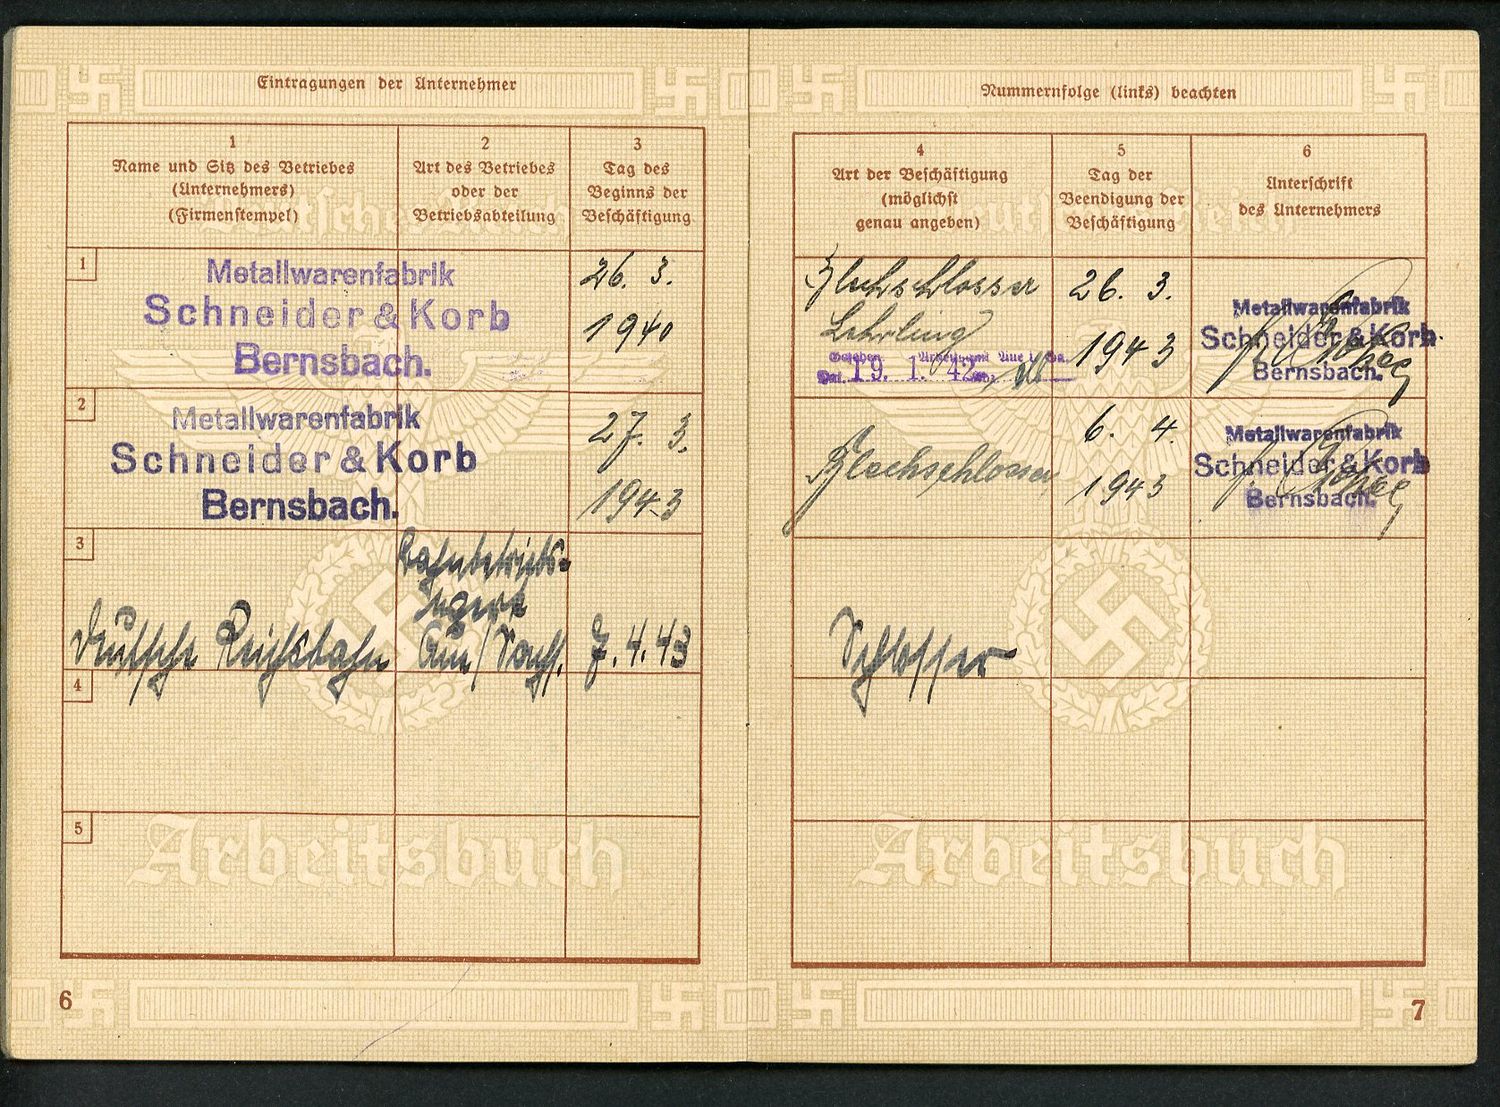 Eintragungen der Unternehmer
1
Name und Sitz des Betriebes
(Unternehmers)
(Firmenstempel)
2
Art des Betriebes
oder der
Betriebsabteilung
3
Tag des
Beginns der
Beschäftigung
1
Metallwarenfabrik
Schneider & Korb
Bernsbach.
26. 3.
1940
2
Metallwarenfabrik
Schneider & Korb
Bernsbach.
27. 3.
1943
3
Deutsche Reichsbahn
Bahnbetriebs-
Aue/Sachs.
7. 4. 43
4
5
Deutsches Reich
Arbeitsbuch
6
Nummernfolge (links) beachten
4
Art der Beschäftigung
(möglichst
genau angeben)
5
Tag der
Beendigung der
Beschäftigung
6
Unterschrift
des Unternehmers
Blechschlosser
Lehrling
Gesehen Arbeitsamt Aue i. Sa.
19. 1. 42
26. 3.
1943
Metallwarenfabrik
Schneider & Korb
Bernsbach.
Blechschlosser
6. 4.
1943
Metallwarenfabrik
Schneider & Korb
Bernsbach.
Schlosser
Deutsches Reich
Arbeitsbuch
7